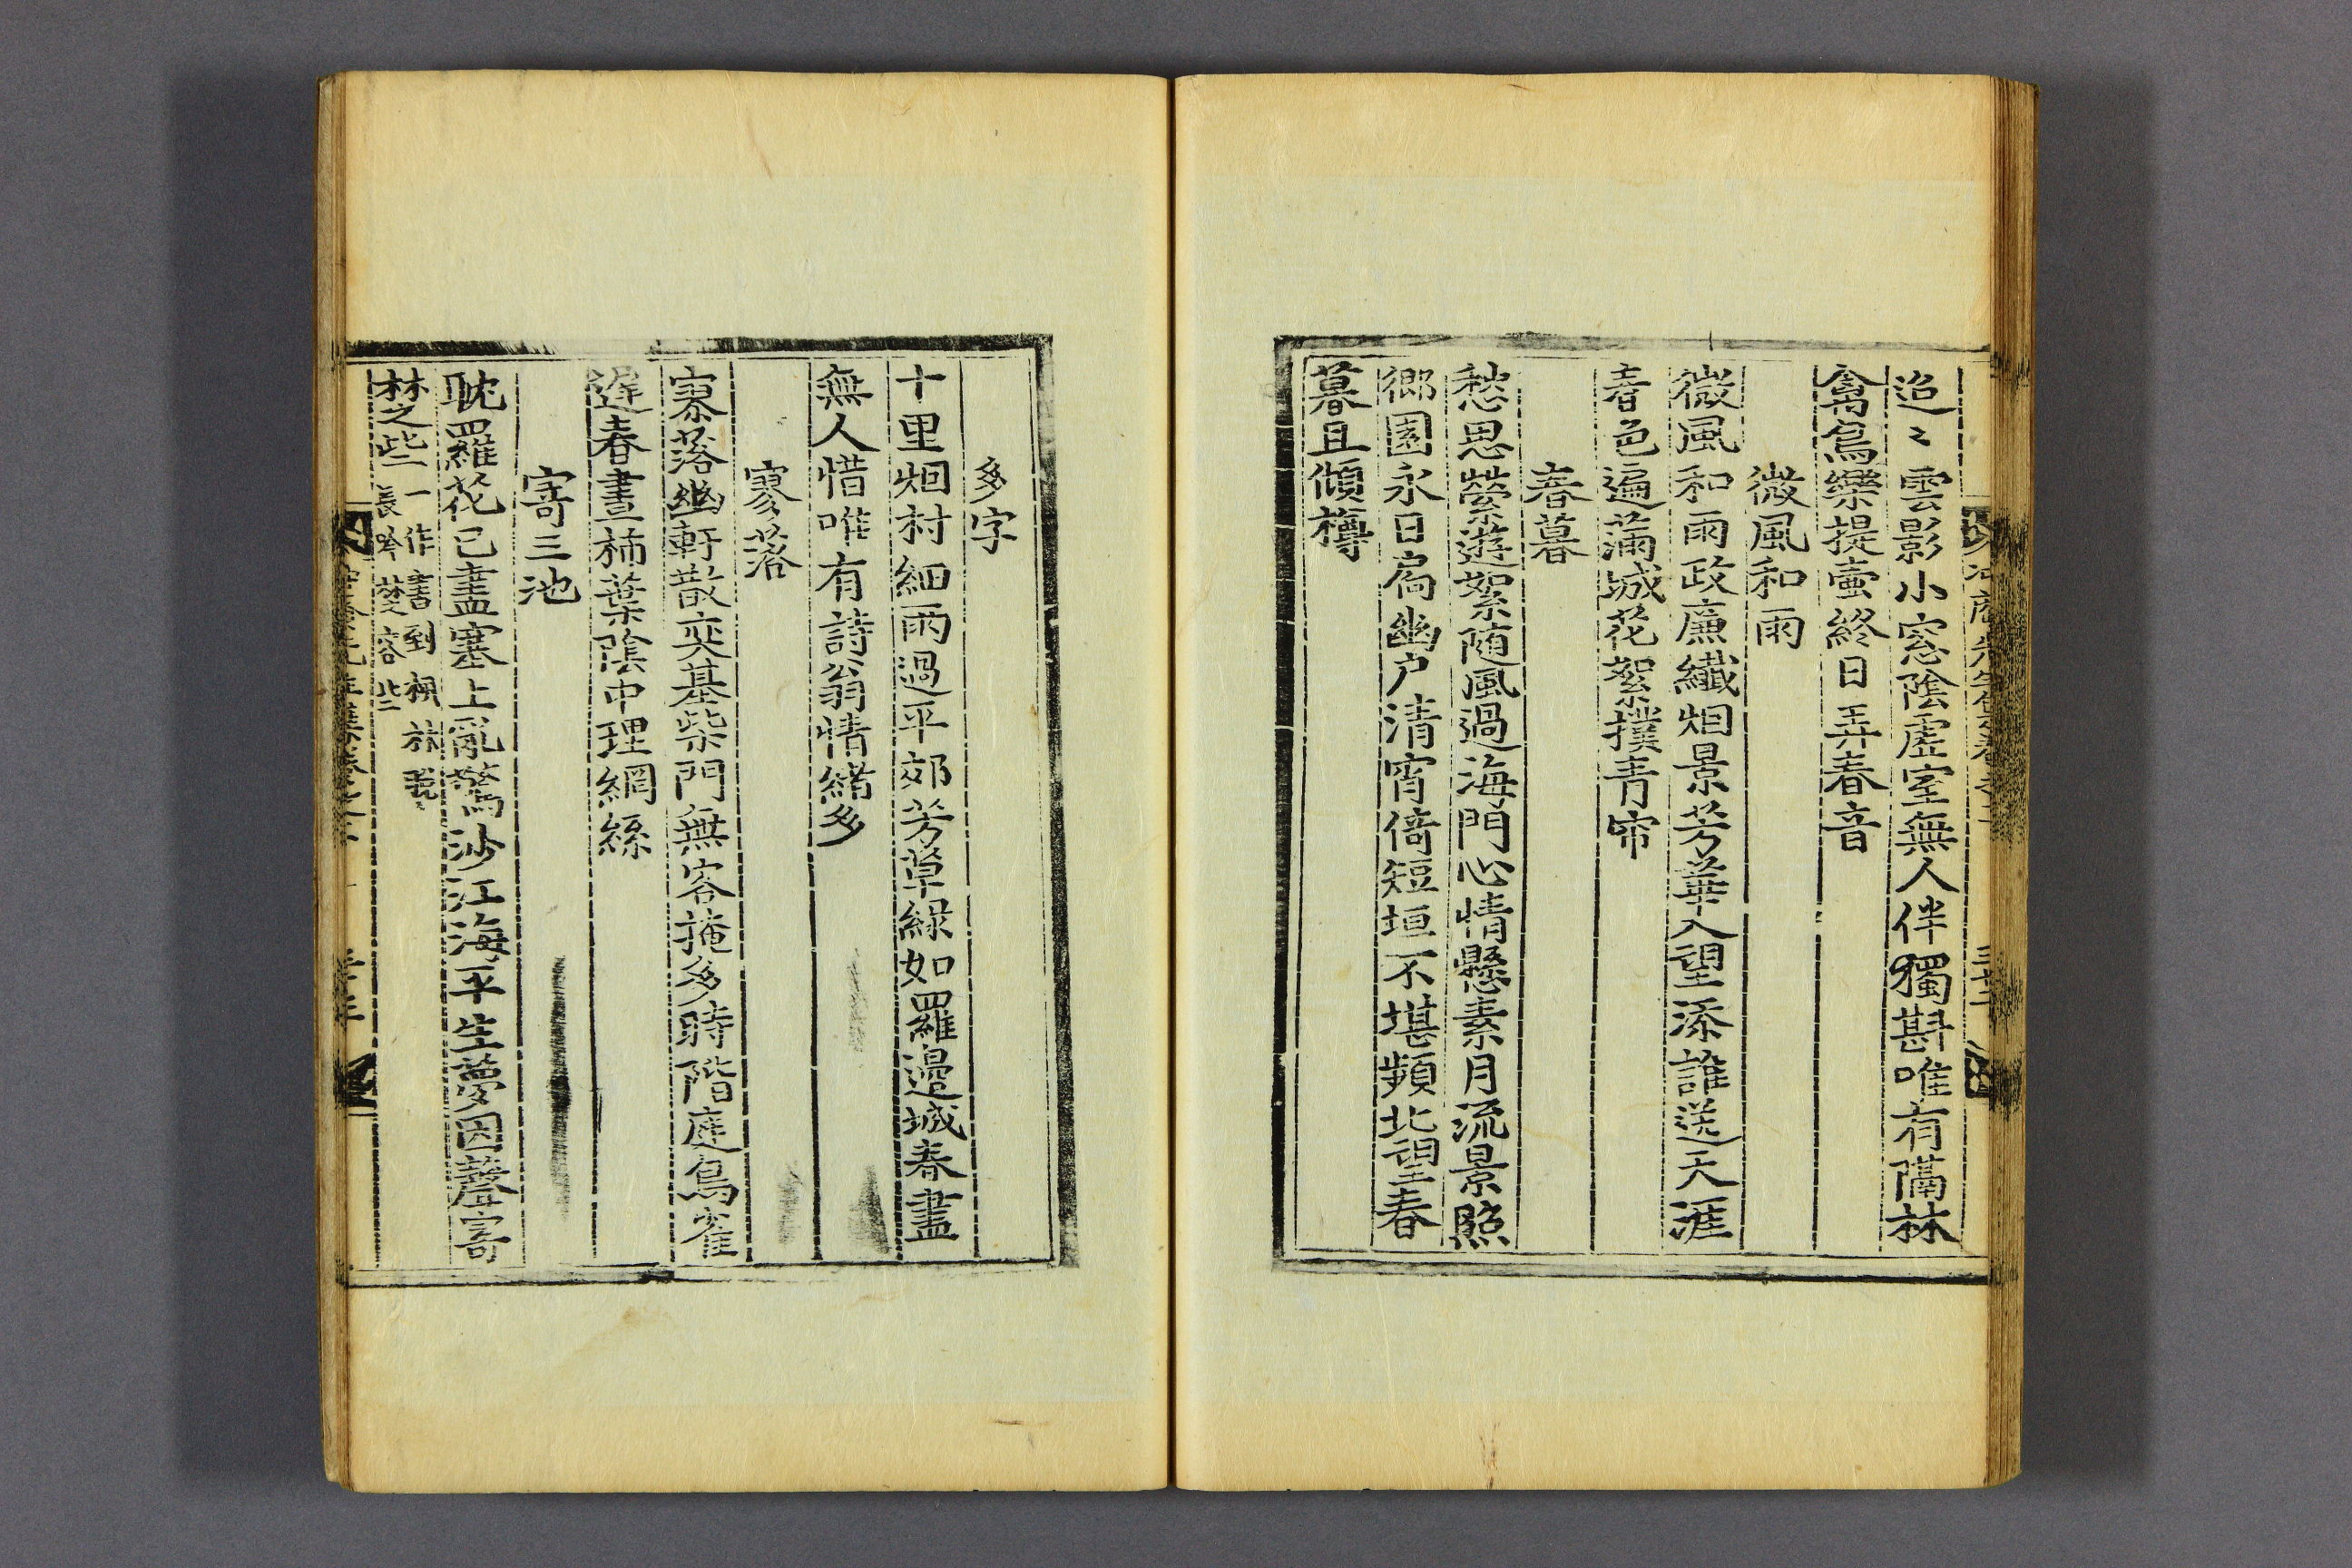 迢〻雲影小窓陰虛室無人伴獨斟唯有隔林
禽鳥樂提壷終日弄春音
微風和雨
微風和雨政廉纖烟景芳華入望添誰送天涯
春色遍滿城花絮撲青帘
春暮
愁思縈遊絮随風過海門心情懸素月流景照
鄉園永日扃幽户清宵倚短垣不堪頻北望春
暮且傾樽
多字
十里烟村細雨過平郊芳草綠如羅邊城春盡
無人惜唯有詩翁情緒多
寥落
寥落幽軒散奕基柴門無客掩多時階庭鳥雀
遲春晝柿葉陰中理網絲
寄三池
耽羅花已盡塞上亂鶯沙江海平生夢因聲寄
楚之些一作書到楓林
長吟楚客些